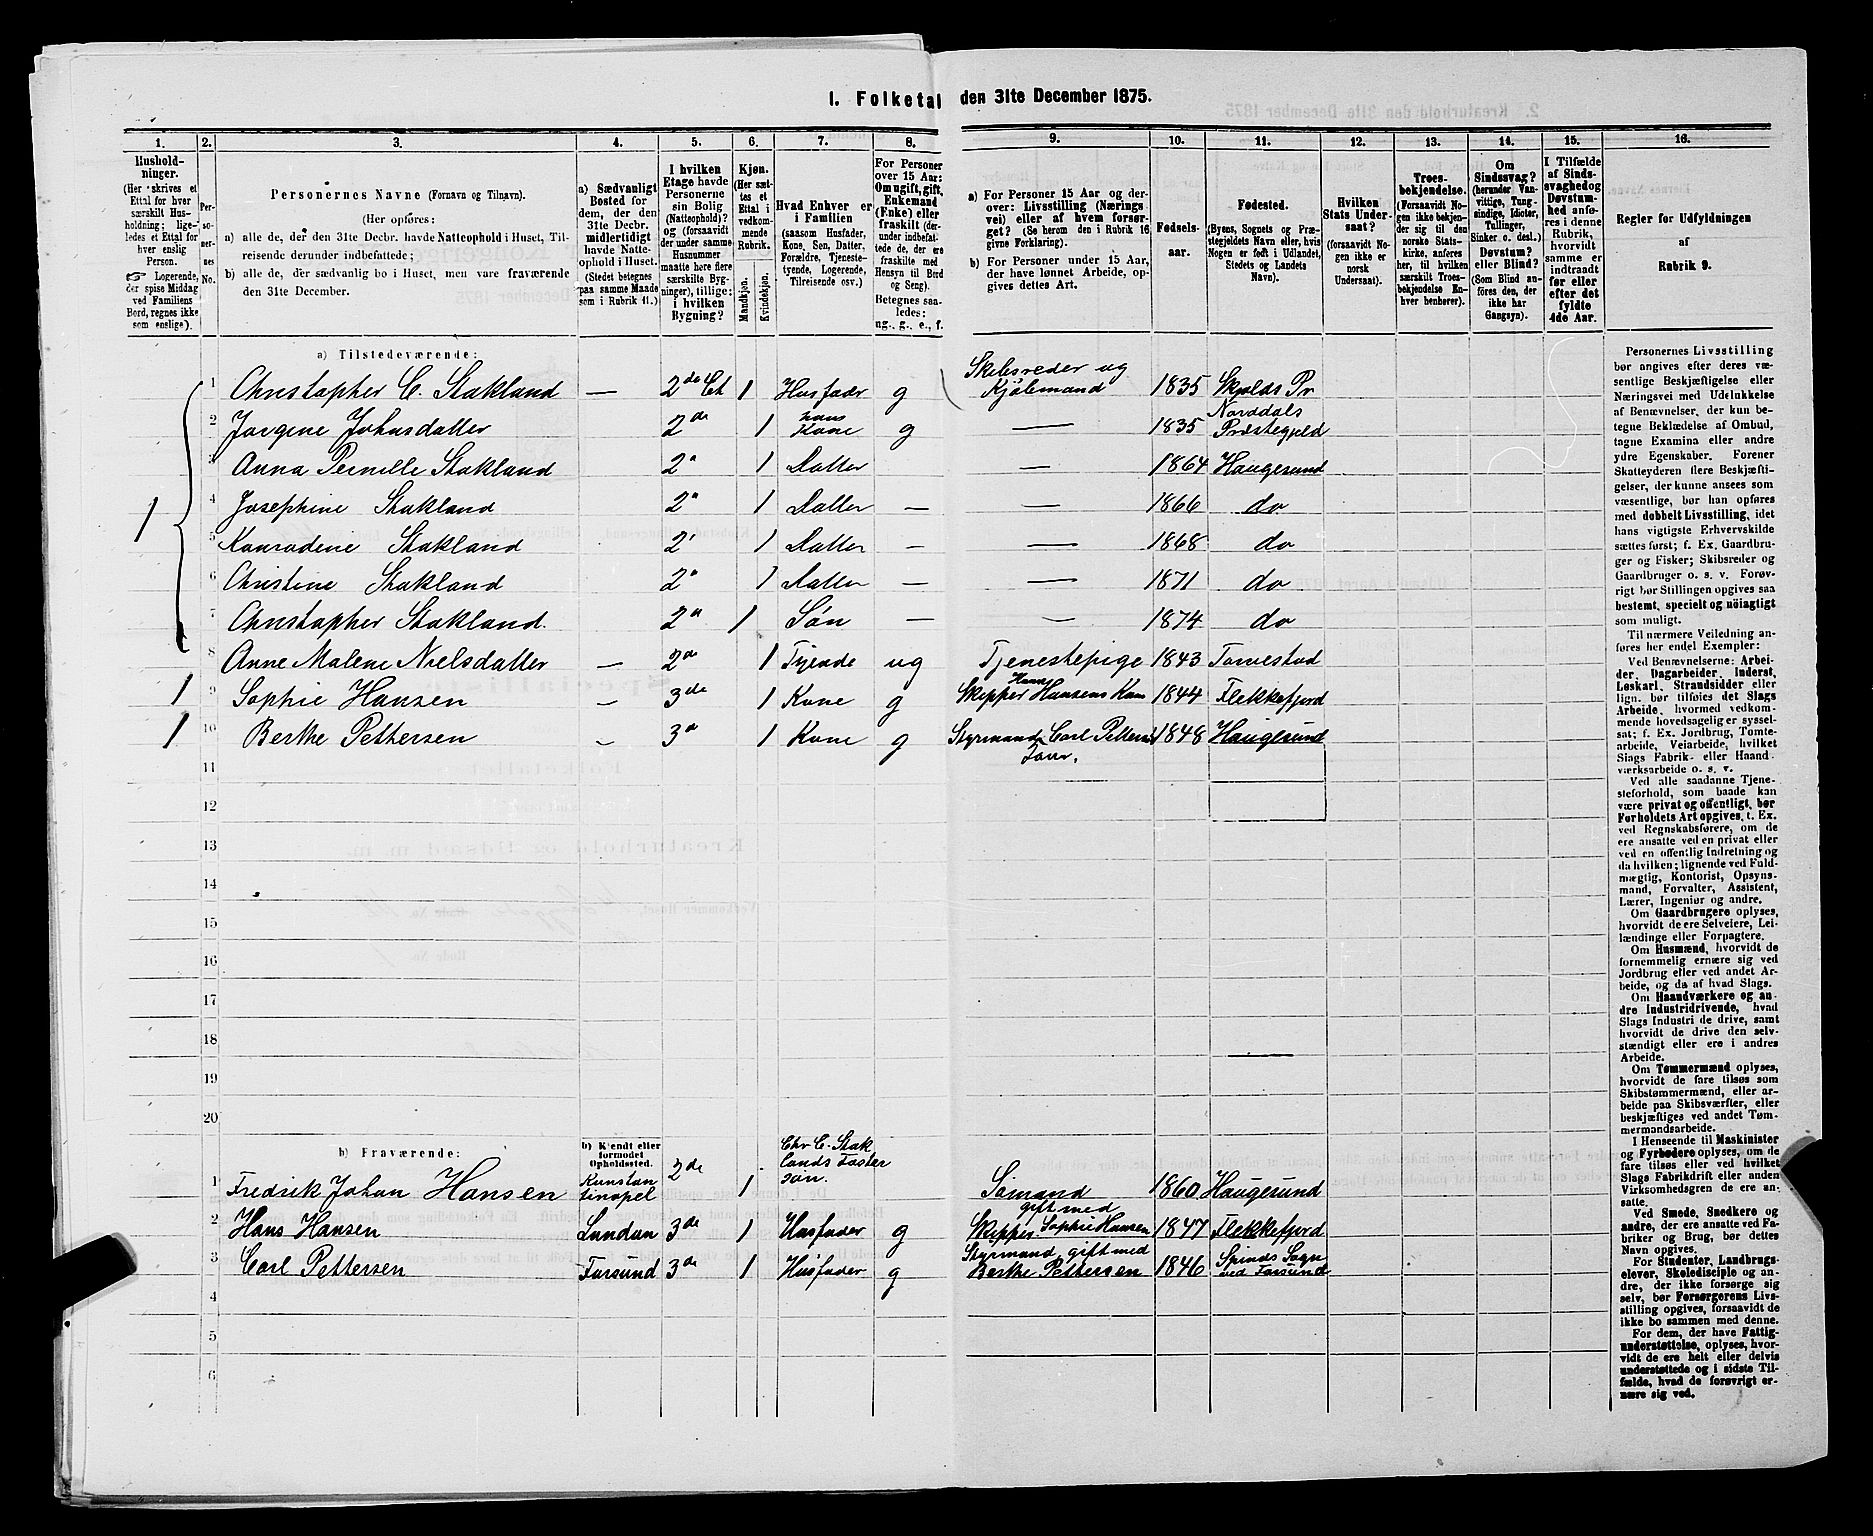 1. Folketal den 31te December 1875.
1. 2. 3. 4. 5. 6. 7. 8. 9. 10. 11. 12. 13. 14. 15. 16.
Hushold-
ninger.
(Her skrives et
Ettal for hver
særskilt Hus-
holdning; lige-
ledes et Ettal for
hver enslig
Person.
☞ Logerende,
der spise Middag
ved Familiens
Bord, regnes ikke
som enslige).
Per-
so-
ner-
nes
No.
Personernes Navne (Fornavn og Tilnavn).
(Her opføres:
a) alle de, der den 31te Decbr. havde Natteophold i Huset, Til-
reisende derunder indbefattede;
b) alle de, der sædvanlig bo i Huset, men vare fraværende
den 31te December.
a) Sædvanligt
Bosted for
dem, der den
31te Decbr.
midlertidigt
havde Natte-
ophold i Huset.
(Stedet betegnes
paa samme Maade
som i Rubrik 11.)
I hvilken
Etage havde
Personerne
sin Bolig
(Natteophold)?
og (forsaavidt
der under samme
Husnummer
maatte høre flere
særskilte Byg-
ninger), tillige:
i hvilken
Bygning?
Kjøn.
(Her sæt-
tes et
Ettal i
vedkom-
mende
Rubrik.
Mandkjøn.
Kvindekjøn.
Hvad Enhver er
i Familien
(saasom Husfader,
Kone, Søn, Datter,
Forældre, Tjeneste-
tyende, Logerende,
Tilreisende osv.)
For Personer
over 15 Aar:
Om ugift, gift,
Enkemand
(Enke) eller
fraskilt (der-
under indbefat-
tede de, der ere
fraskilte med
Hensyn til Bord
og Seng).
Betegnes saa-
ledes:
ug., g., e., f.
a) For Personer 15 Aar og der-
over: Livsstilling (Nærings-
vei) eller af hvem forsør-
get? (Se herom den i Rubrik 16
givne Forklaring).
b) For Personer under 15 Aar,
der have lønnet Arbeide, op-
gives dettes Art.
Fødsels-
aar.
Fødested.
(Byens, Sognets og Præ-
stegjeldets Navn eller, hvis
Nogen er født i Udlandet,
Stedets og Landets
Navn).
Hvilken
Stats Under-
saat?
(forsaavidt No-
gen ikke er
norsk
Undersaat).
Troes-
bekjendelse.
(Forsaavidt No-
gen ikke bekjen-
der sig til den
norske Stats-
kirke, anføres
her, til hvilken
særskilt Troes-
bekjendelse En-
hver henhører).
Om
Sindssvag?
(herunder Van-
vittige, Tung-
sindige, Idioter,
Tullinger,
Sinker o. desl.).
Døvstum?
eller Blind?
(Som Blind an-
føres den, der
ikke har
Gangsyn).
I Tilfælde
af Sinds-
svaghed og
Døvstum-
hed anfø-
res i denne
Rubrik,
hvorvidt
samme er
indtraadt
før eller
efter det
fyldte
4de Aar.
Regler for Udfyldningen
af
Rubrik 9.
a) Tilstedeværende:
1 1 Christopher C. Stakland — 2de Et 1 Husfader g Skibsreder og Kjøbmand 1835 Skjolds Pr
2 Jorgine Johnsdatter 2de 1 hans Kone g — 1835 Norddals Præstegjeld
3 Anna Pernille Stakland 2" 1 Datter — 1864 Haugesund
4 Josephine Stakland 2" 1 Datter — — 1866 do
5 Konradene Stakland 2' 1 Datter — — 1868 do
6 Christine Stakland 2" 1 Datter — — 1871 do
7 Christopher Stakland. 2" 1 Søn — — 1874 do
8 Anne Malene Nielsdatter — 2" 1 Tyende ug Tjenestepige 1843 Torvestad
1 9 Sophie Hansen — 3de 1 Kone g Skipper Hans Hansens Kone 1844 Flekkefjord
1 10 Berthe Pettersen — 3" 1 Kone g Styrmand Carl Pettersens 1848 Haugesund
11
12
13
14
15
16
17
18
19
20
b) Fraværende:
b) Kjendt eller
formodet
Opholdssted.
1 Fredrik Johan Hansen Konstantinopel 2de 1 Chr C. Staklands Søster søn. Sømand 1860 Haugesund
2 Hans Hansen London 3de 1 Husfader g Skipper gift med Sophie Hansen 1847 Flekkefjord
3 Carl Pettersen Farsund 3de 1 Husfader g Styrmand gift med Berthe Pettersen 1846 Spinds Sogn ved Farsund
4
5
6
Personernes Livsstilling
bør angives efter deres væ-
sentlige Beskjæftigelse eller
Næringsvei med Udelukkelse
af Benævnelser, der kun be-
tegne Beklædelse af Ombud,
tagne Examina eller andre
ydre Egenskaber. Forener
Skatteyderen flere Beskjæfti-
gelser, der kunne ansees som
væsentlige, bør han opføres
med dobbelt Livsstilling, idet
hans vigtigste Erhvervskilde
sættes først; f. Ex. Gaardbru-
ger og Fisker; Skibsreder og
Gaardbruger o. s. v. Forøv-
rigt bør Stillingen opgives saa
bestemt, specielt og nöiagtigt
som muligt.
Til nærmere Veiledning an-
føres her endel Exempler:
Ved Benævnelserne: Arbei-
der, Dagarbeider, Inderst,
Løskarl, Strandsidder eller
lign. bør tilføies det Slags
Arbeide, hvormed vedkom-
mende hovedsagelig er syssel-
sat; f. Ex. Jordbrug, Tomte-
arbeide, Veiarbeide, hvilket
Slags Fabrik- eller Haand-
værksarbeide o. s. v.
Ved alle saadanne Tjene-
steforhold, som baade kan
være privat og offentligt, bør
Forholdets Art opgives, t. Ex.
ved Regnskabsførere, om de
ere ansatte ved en privat eller
ved en offentlig Indretning og
da hvilken; lignende ved Fuld-
mægtig, Kontorist, Opsyns-
mand, Forvalter, Assistent,
Lærer, Ingeniør og andre.
Om Gaardbrugere oplyses,
hvorvidt de ere Selveiere, Lei-
lændinge eller Forpagtere.
Om Husmænd, hvorvidt de
fornemmelig ernære sig ved
Jordbrug eller ved andet Ar-
beide, og da af hvad Slags.
Om Haandværkere og an-
dre Industridrivende, hvad
Slags Industri de drive, samt
hvorvidt de drive den selv-
stændigt eller ere i andres
Arbeide.
Om Tømmermænd oplyses,
hvorvidt de fare tilsøs som
Skibstømmermænd, eller ar-
beide paa Skibsværfter, eller
beskjæftiges ved andet Tøm-
mermandsarbeide.
I Henseende til Maskinister
og Fyrbødere oplyses, om de
fare tilsøs eller ved hvilket
Slags Fabrikdrift eller anden
Virksomhedsgren de ere an-
satte.
Ved Smede, Snedkere og
andre, der ere ansatte ved Fa-
briker og Brug, bør dettes
Navn opgives.
For Studenter, Landbrugs-
elever, Skoledisciple og an-
dre, der ikke forsørge sig
selv, bør Forsørgerens Livs-
stilling opgives, forsaavidt de
ikke bo sammen med denne.
For dem, der have Fattig-
understøttelse, oplyses, hvor-
vidt de ere helt eller delvis
understøttede og i sidste Til-
fælde, hvad de forøvrigt er-
nære sig ved.